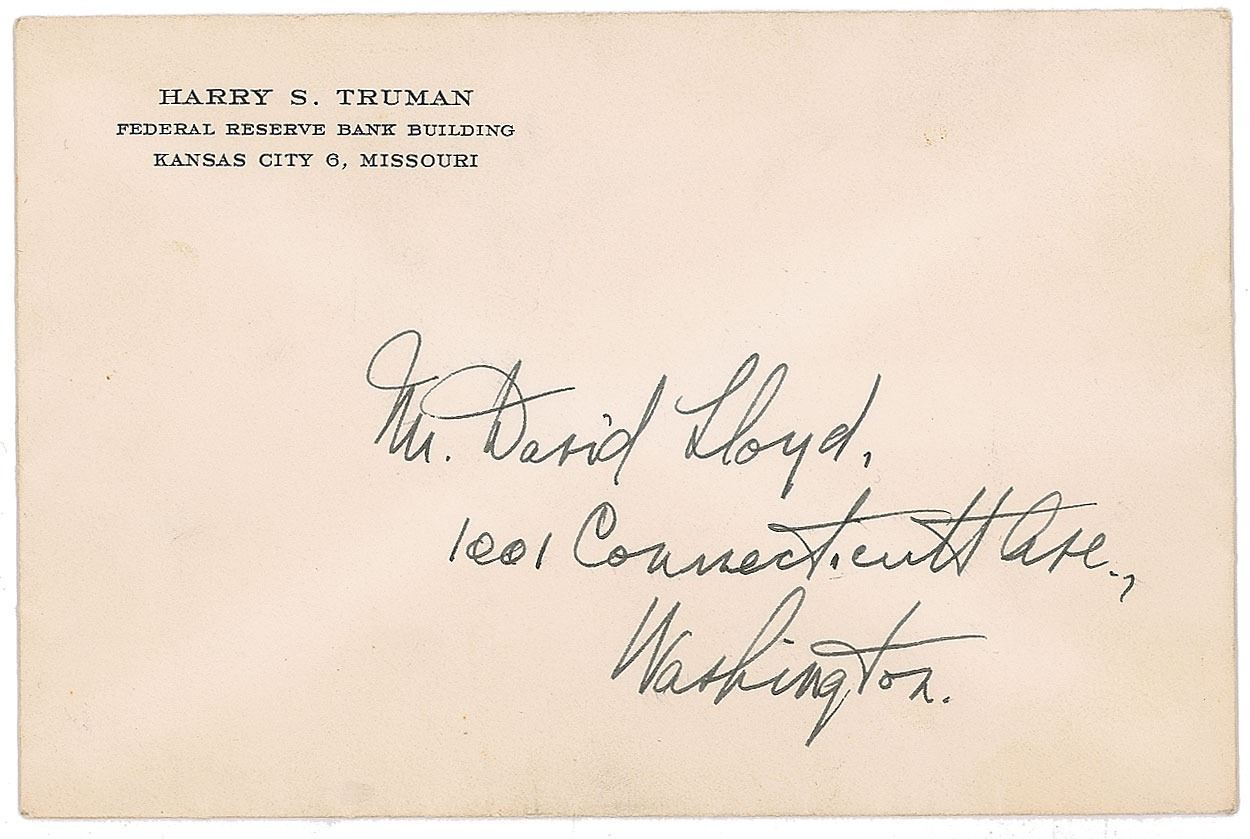 HARRY S. TRUMAN
FEDERAL RESERVE BANK BUILDING
KANSAS CITY 6, MISSOURI
Mr. David Lloyd,
1001 Connecticutt Ave.,
Washington.